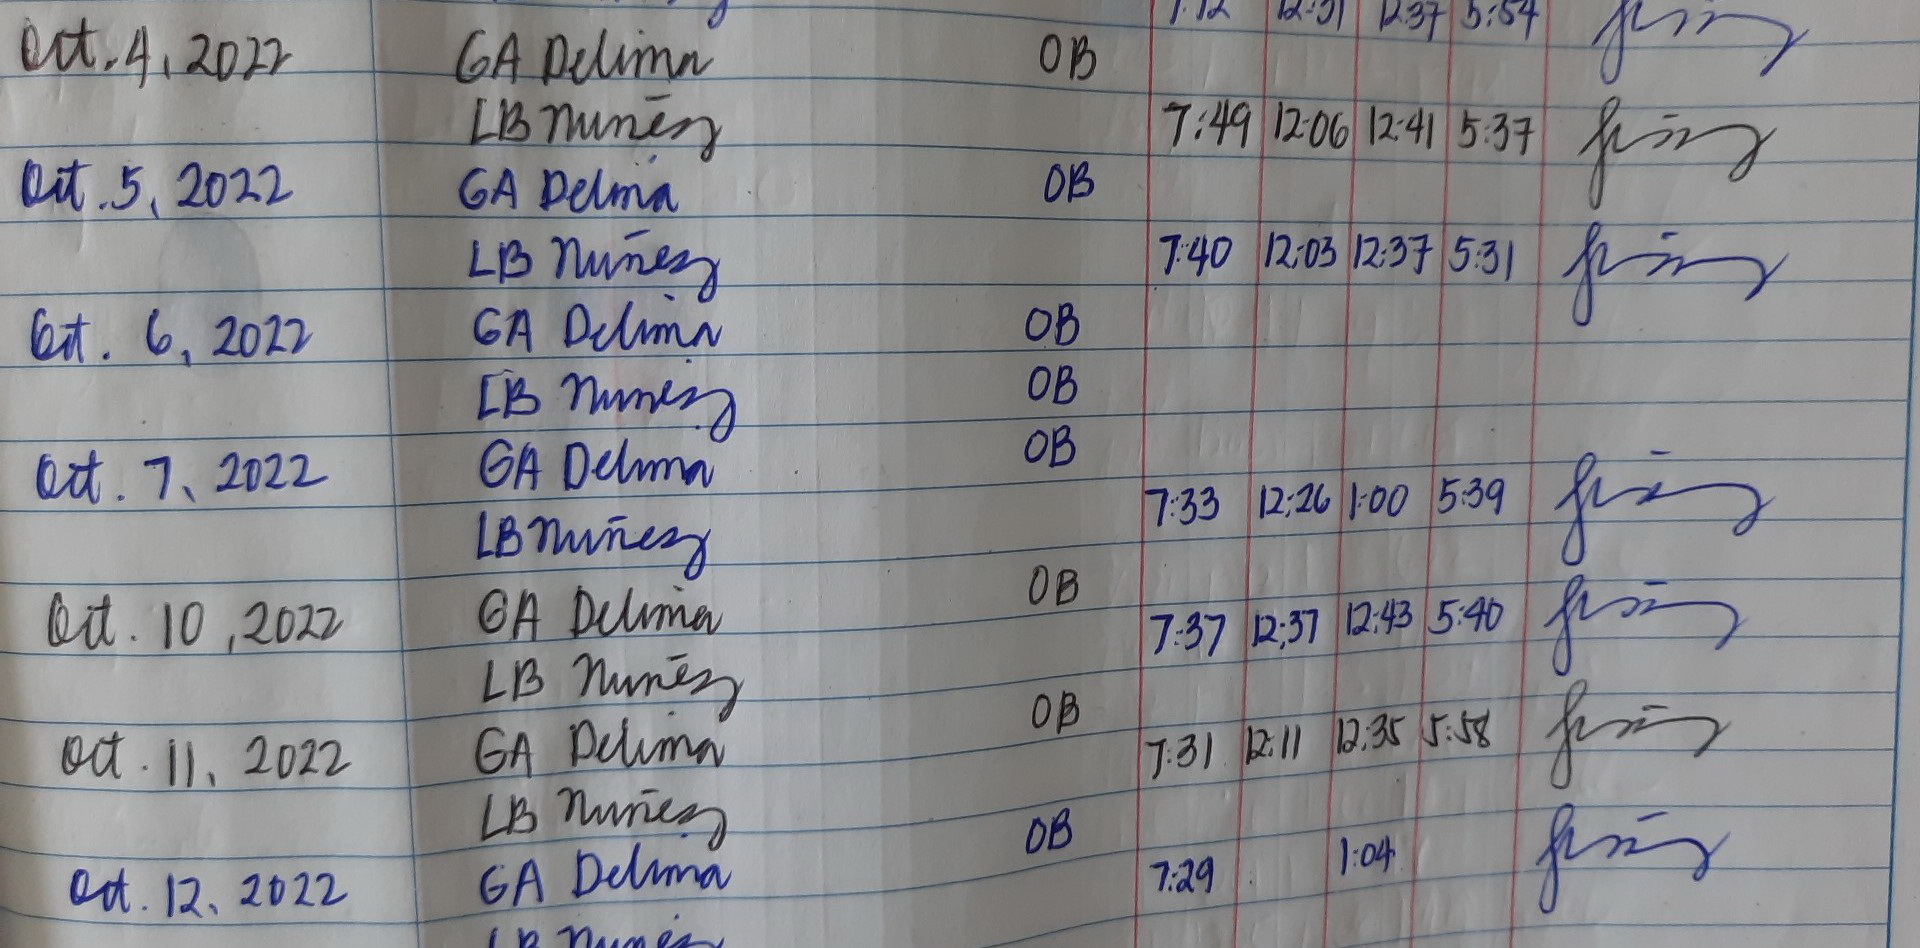 7:12 12:31 12:37 5:54
Oct. 4, 2022 GA Delima OB
LB Nuñez 7:49 12:06 12:41 5:37
Oct. 5, 2022 GA Delima OB
LB Nuñez 7:40 12:03 12:37 5:31
Oct. 6, 2022 GA Delima OB
LB Nuñez OB
Oct. 7, 2022 GA Delima OB
LB Nuñez 7:33 12:26 1:00 5:39
Oct. 10, 2022 GA Delima OB
LB Nuñez 7:37 12:37 12:43 5:40
Oct. 11, 2022 GA Delima OB
LB Nuñez 7:31 12:11 12:35 5:58
Oct. 12, 2022 GA Delima OB
LB Nuñez 7:29 1:04